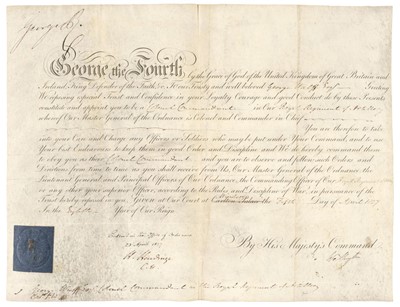 George R.
George the Fourth by the Grace of God of the United Kingdom of Great Britain and
Ireland, King, Defender of the Faith, &c. To our Trusty and well beloved George Greeting
We reposing especial Trust and Confidence in your Loyalty Courage and good Conduct do by these Presents
constitute and appoint you to be Colonel Commandant in Our Royal Regiment of
whereof Our Master General of the Ordnance is Colonel and Commander in Chief
You are therefore to take
into your Care and Charge any Officers or Soldiers who may be put under your Command, and to use
Your best Endeavours to keep them in good Order and Discipline And We do hereby command them
to obey you as their Colonel Commandant and you are to observe and follow such Orders and
Directions from time to time as you shall receive from Us, Our Master General of the Ordnance, the
Lieutenant General and Principal Officers of Our Ordnance, the Commanding Officer of Our
or any other Your superior Officer, according to the Rules and Discipline of War in pursuance of the
Trust hereby reposed in you. Given at Our Court at the Day of April 1827
in the Eighth Year of Our Reign
Entered in the Office of Ordnance
April 1827
By His Majesty's Command
Colonel Commandant in the Royal Regiment of Artillery